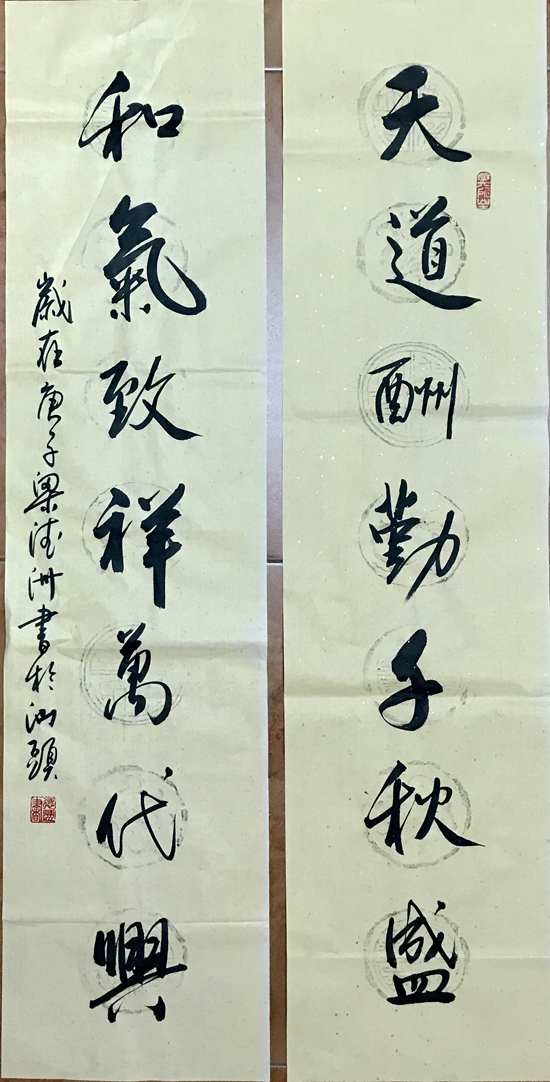 天道酬勤千秋盛
和氣致祥萬代興
歲在庚子梁德洲書於汕頭